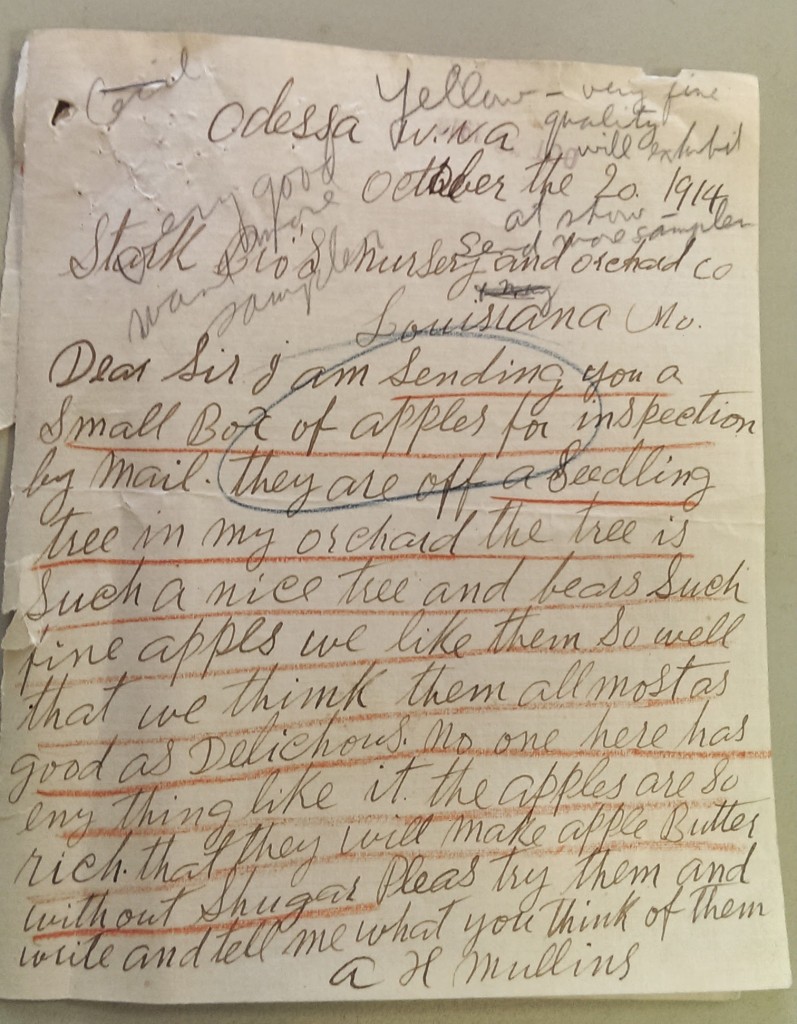 Yellow - very fine
Odessa W.V.A quality
will exhibit
October the 20. 1914
at show -
Send more samples
very good
want more
samples
Stark Bro's Nursery and orchard co
Louisiana Mo.
Dear Sir I am Sending you a
Small Box of apples for inspection
by Mail. they are off a Seedling
tree in my orchard the tree is
Such a nice tree and bears Such
fine appls we like them So well
that we think them allmost as
good as Delichous. No one here has
eny thing like it. the apples are So
rich. that they will make apple Butter
without Shugar Pleas try them and
write and tell me what you think of them
A H Mullins